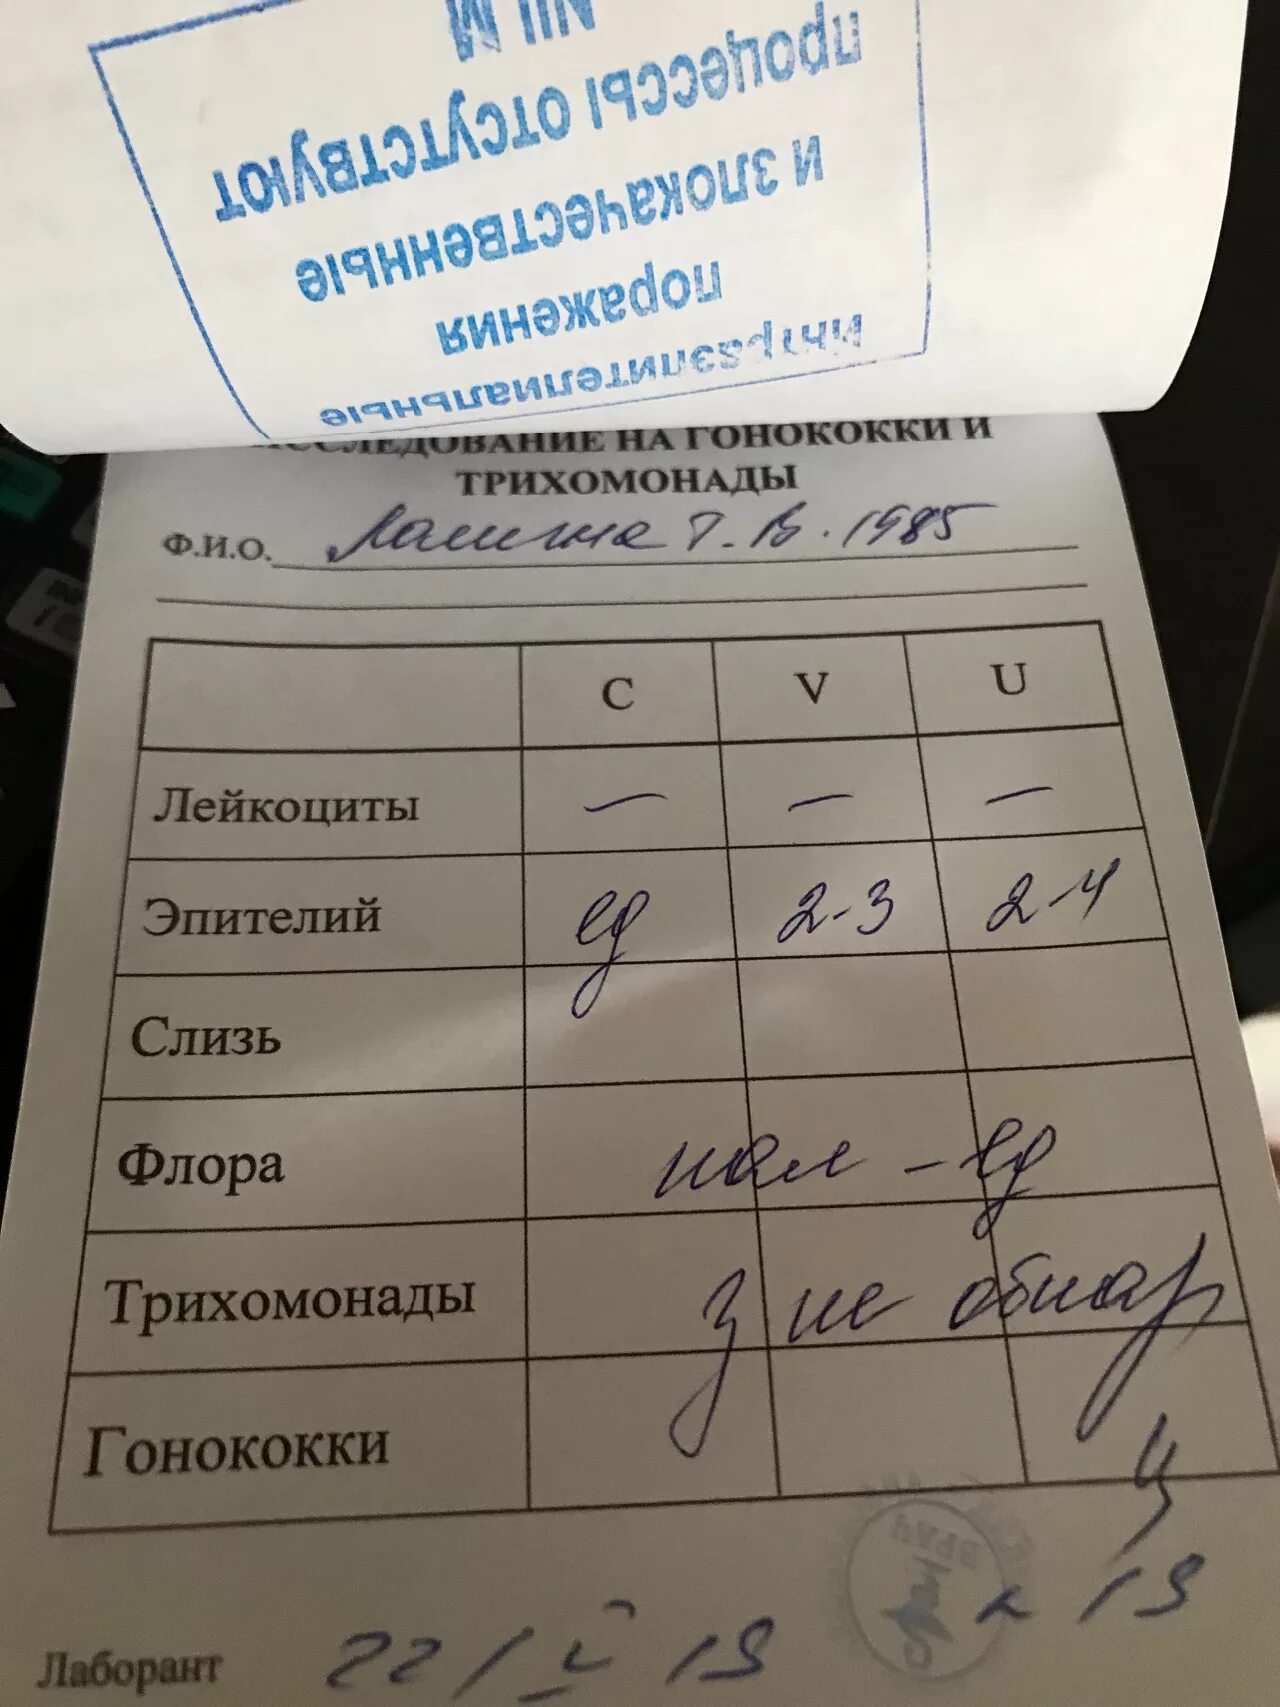 Интраэпителиальные
поражения
и злокачественные
процессы отсутствуют
NILM
ИССЛЕДОВАНИЕ НА ГОНОКОККИ И
ТРИХОМОНАДЫ
Ф.И.О. Г. В. 1985
C V U
Лейкоциты — — —
Эпителий ед 2-3 2-4
Слизь
Флора пал - ед
Трихомонады } не обнар
Гонококки
ВРАЧ
Лаборант 22/ 19